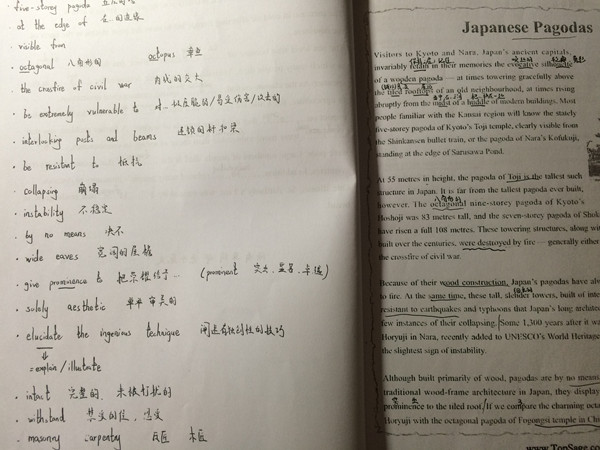 five-storey pagoda
at the edge of
visible from
octagonal 八角形的 octopus 章鱼
the crossfire of civil war 内战的交火
be extremely vulnerable to 对…
interlocking posts and beams 连锁的柱和梁
be resistant to 抵抗
collapsing 崩塌
instability 不稳定
by no means 决不
wide eaves 宽阔的屋檐
give prominence to 把荣耀给予… (prominent 突出,显著,卓越)
solely aesthetic 单单 审美的
elucidate the ingenious technique 阐述有独创性的技巧
= explain / illustrate
intact 完整的, 未被打扰的
withstand 禁受的住, 忍受
masonry carpentry 瓦匠 木匠
Japanese Pagodas
Visitors to Kyoto and Nara, Japan's ancient capitals,
invariably retain in their memories the evocative silhouette
of a wooden pagoda — at times towering gracefully above
the tiled rooftops of an old neighbourhood, at times rising
abruptly from the midst of a huddle of modern buildings. Most
people familiar with the Kansai region will know the stately
five-storey pagoda of Kyoto's Toji temple, clearly visible from
the Shinkansen bullet train, or the pagoda of Nara's Kofukuji,
standing at the edge of Sarusawa Pond.
At 55 metres in height, the pagoda of Toji is the tallest such
structure in Japan. It is far from the tallest pagoda ever built,
八角形的
however. The octagonal nine-storey pagoda of Kyoto's
Hoshoji was 83 metres tall, and the seven-storey pagoda of Shok
have risen a full 108 metres. These towering structures, along wit
built over the centuries, were destroyed by fire — generally either
the crossfire of civil war.
Because of their wood construction, Japan's pagodas have al
to fire. At the same time, these tall, slender towers, built of inter
resistant to earthquakes and typhoons that Japan's long architec
few instances of their collapsing. Some 1,300 years after it wa
Horyuji in Nara, recently added to UNESCO's World Heritage
the slightest sign of instability.
Although built primarily of wood, pagodas are by no means
traditional wood-frame architecture in Japan, they display
prominence to the tiled roof. If we compare the charming octa
Horyuji with the octagonal pagoda of Fogongsi temple in Chi
www.TopSage.co